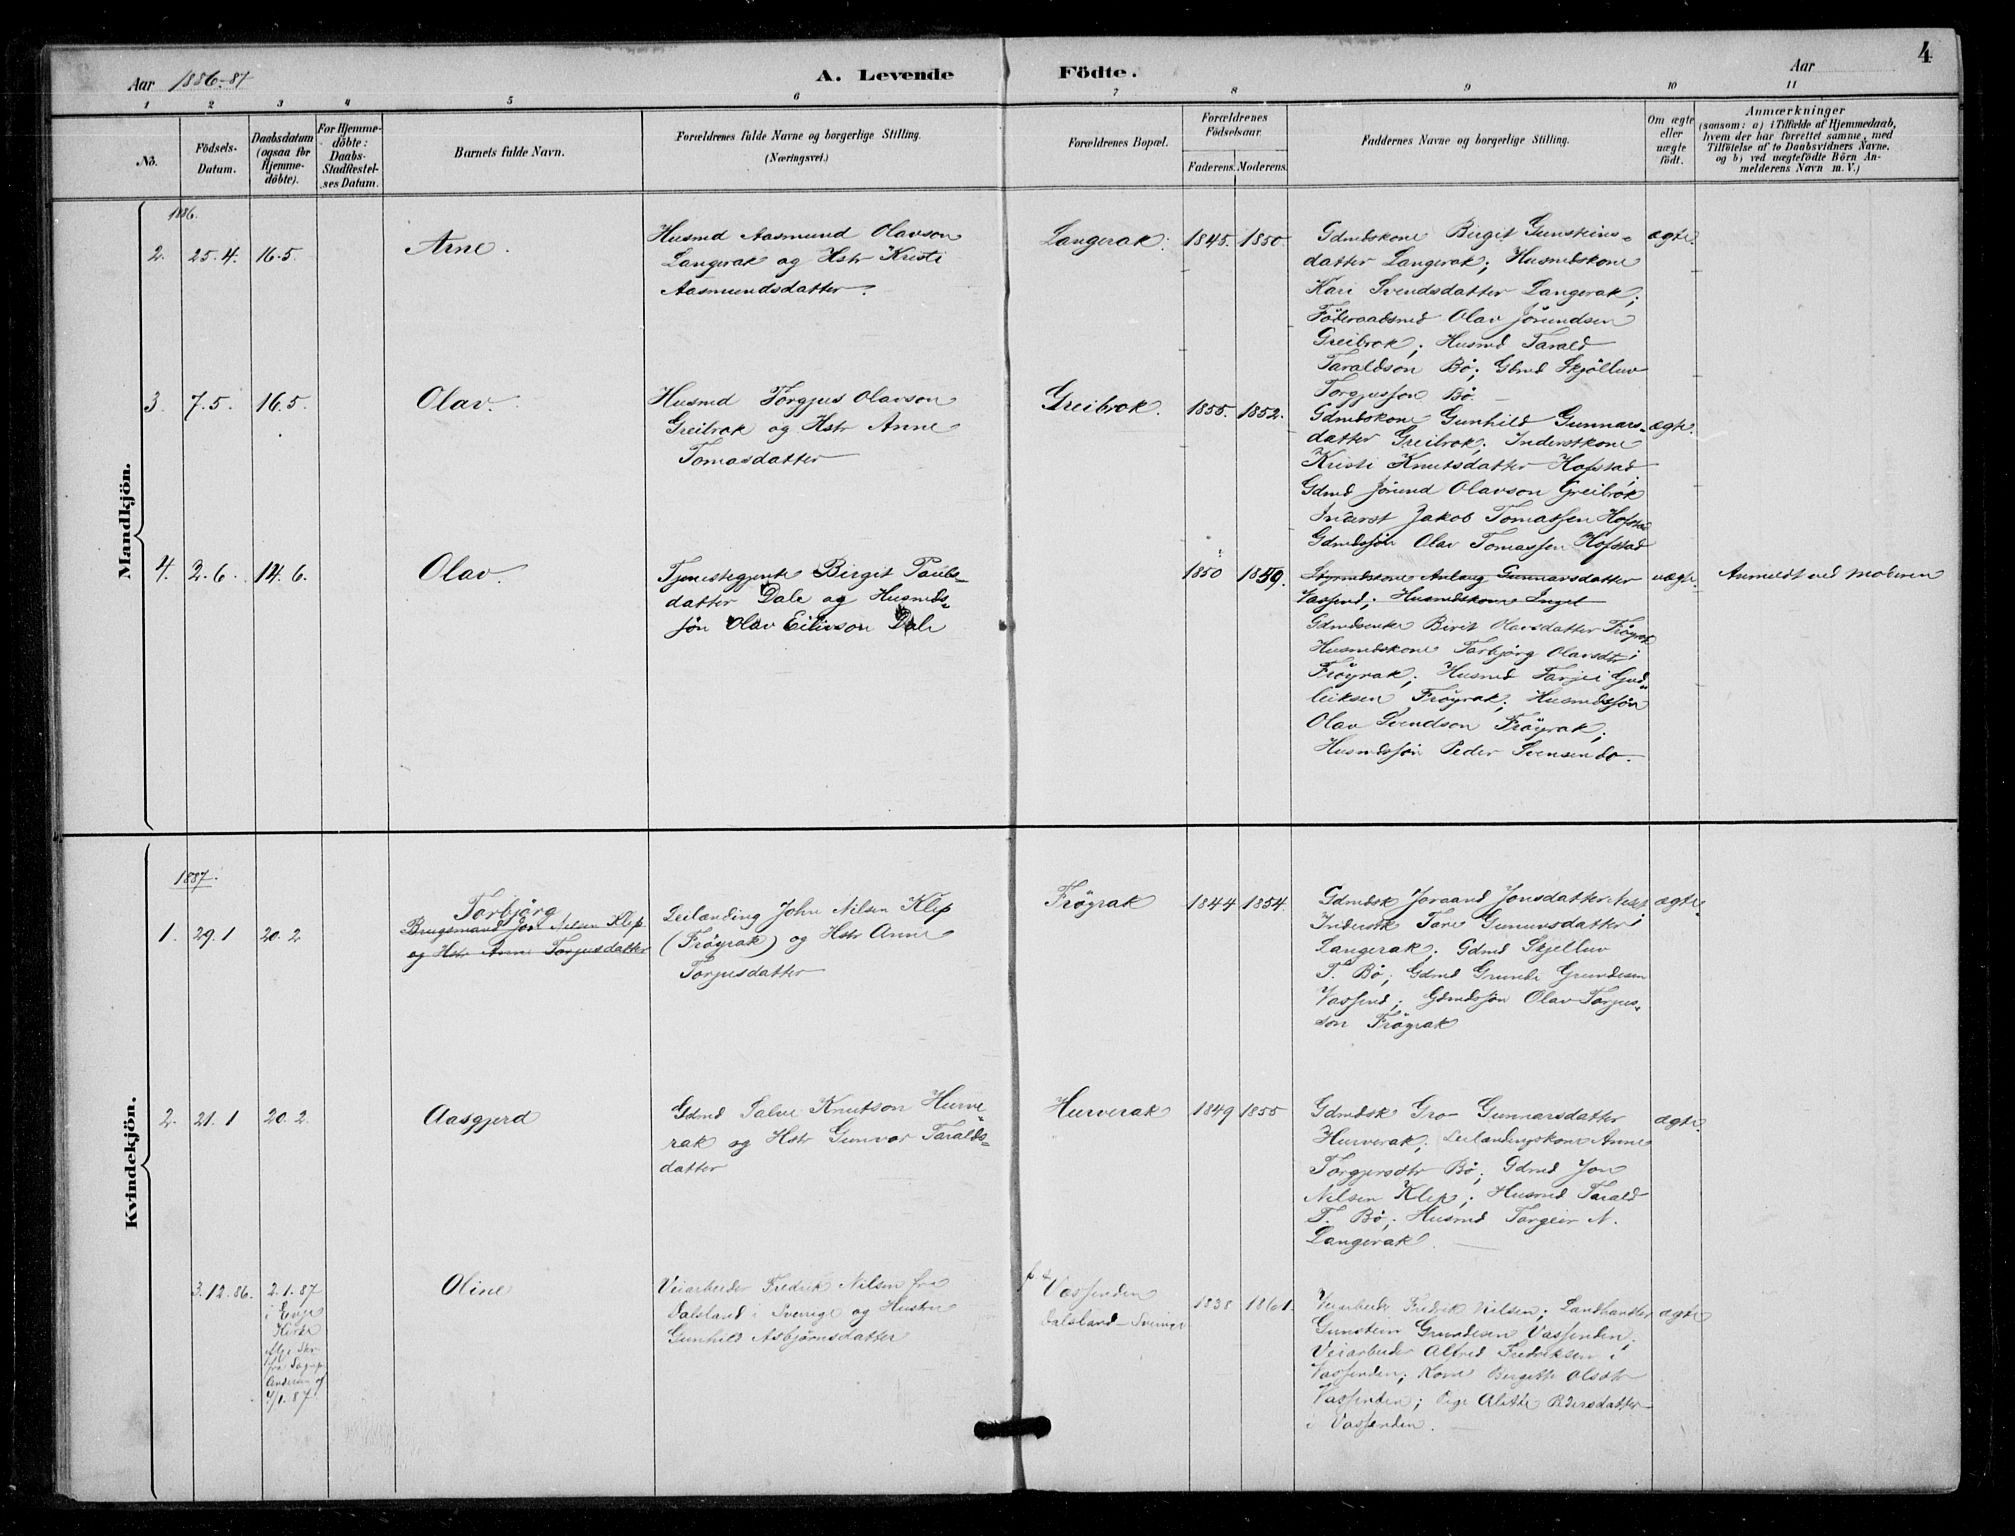 4
Aar 1886-87
A. Levende Födte.
Aar
1 2 3 4 5 6 7 8 9 10 11
No.
Födsels-Datum.
Daabsdatum (ogsaa for Hjemme-döbte).
For Hjemme-döbte: Daabs-Stadfæstel-ses Datum.
Barnets fulde Navn.
Forældrenes fulde Navne og borgerlige Stilling.
(Næringsvei.)
Forældrenes Bopæl.
Forældrenes Födselsaar.
Faderens. Moderens.
Faddernes Navne og borgerlige Stilling.
Om ægte eller uægte födt.
Anmærkninger
(saasom: a) i Tilfælde af Hjemmedaab,
hvem der har forrettet samme, med
Tilföielse af to Daabsvidners Navne.
og b) ved uægtefödte Börn An-
melderens Navn m. V.)
Mandkjön.
1886.
2. 25.4. 16.5. Arne.
Husmd Aasmund Olavson
Langerak og Hstr Kristi
Aasmundsdatter.
Langerak. 1845. 1850.
Gdmdskone Birgit Gunsteins-
datter Langerak; Husmdskone
Kari Svendsdatter Langerak;
Föderaadsmd Olav Jörundsen
Greibrok; Husmd Tarald
Taraldson Bö; Gbmd Skjölluv
Torgjussøn Bö.
ægte.
3. 7.5. 16.5. Olav.
Husmd Torgjus Olavson
Greibrok og Hstr Anne
Tomasdatter
Greibrok. 1855. 1852.
Gdmdskone Gunhild Gunnars-
datter Greibrok; Inderstkone
Kristi Knutsdatter Hofstad
Gdmd Jörund Olavson Greibrok
Inderst Jakob Tomassen Hofstad
Gdmdssön Olav Tomassen Hofstad
ægte.
4. 2.6. 14.6. Olav.
Tjenestegjente Birgit Pauls-
datter Dale og Husmds-
søn Olav Eilivson Dale
1850 1859.
Gunnarsdatter
Vassend; Husmdskone Ingeb
Gdmdsenke Birit Olavsdatter Fröyrak
Husmdskone Torbjörg Olavsdtr i
Fröyrak; Husmd Tarjei Gud-
leiksen Fröyrak; Husmdssön
Olav Svendson Fröyrak;
Husmdssön Peder Svensen do.
uægte.
Anmeldt ved Moderen
Kvindekjön.
1887.
1. 29.1 20.2
Torbjörg
Brugsmand Jon Nilsen Klep
og Hstr Anne Torjusdatter
Leilænding John Nilsen Klep
(Fröyrak) og Hstr Anne
Torjusdatter
Fröyrak 1844 1854.
Gdmdsk Joraand Jonsdatter
Inderstk Tore Gunnarsdatter i
Langerak; Gdmd Skjelluv
T. Bö; Gdmd Grunde Grundesen
Vassend; Gdmdssön Olav Torjus-
son Fröyrak
ægte.
2. 21.1 20.2. Aasgjerd
Gdmd Salve Knutson Hurve-
rak og Hstr Gunvor Taralds-
datter
Hurverak 1849 1855
Gdmdsk Gro Gunnarsdatter
Hurverak; Leilændingskone Anne
Torgjersdtr Bö; Gdmd Jon
Nilsen Klep; Husmd Tarald
T. Bö; Husmd Torgeir N.
Langerak.
ægte.
3.12.86. 2.1.87
i Evje
Kirke
Andersen af
4/1.87.
Oline
Veiarbeider Fredrik Nilsen fra
Dalsland i Sverige og Hustru
Gunhild Asbjörnsdatter
Vassenden
Dalsland - Sverige
1838 1861.
Veiarbeider Fredrik Nilsen; Landhandler
Gunstein Grundesen Vassenden;
Veiarbeider Alfred Fredriksen i
Vassenden; Kone Birgitte Olsdtr
Vassenden; Pige Alette Pedersdatter
i Vassenden.
ægte